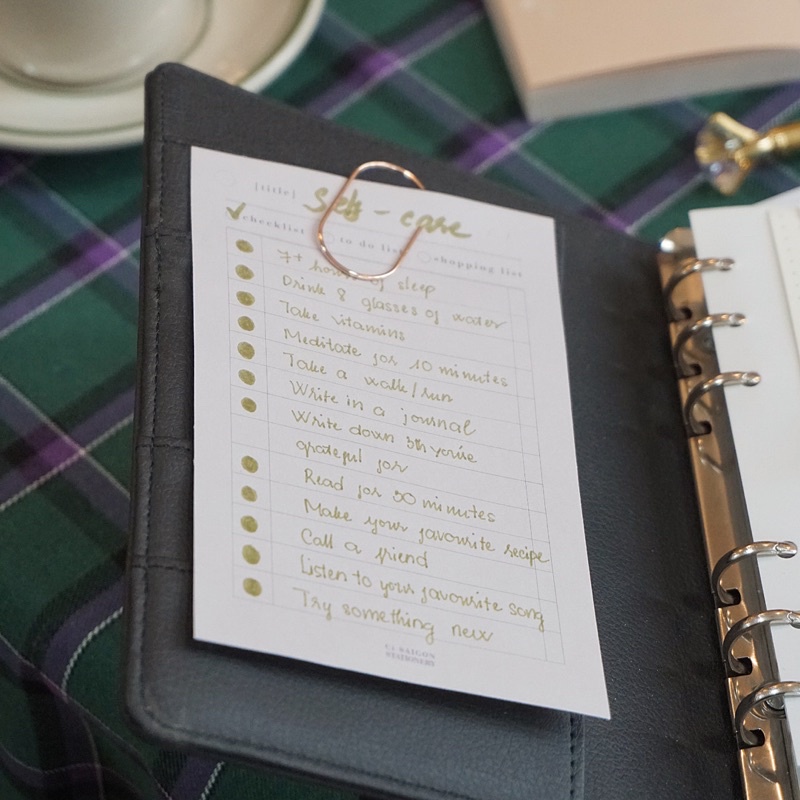 [title] Self-care
checklist to do list shopping list
7+ hours of sleep
Drink 8 glasses of water
Take vitamins
Meditate for 10 minutes
Take a walk/run
Write in a journal
Write down 3th you're
grateful for
Read for 30 minutes
Make your favourite recipe
Call a friend
Listen to your favourite song
Try something new
CI SAIGON
STATIONERY